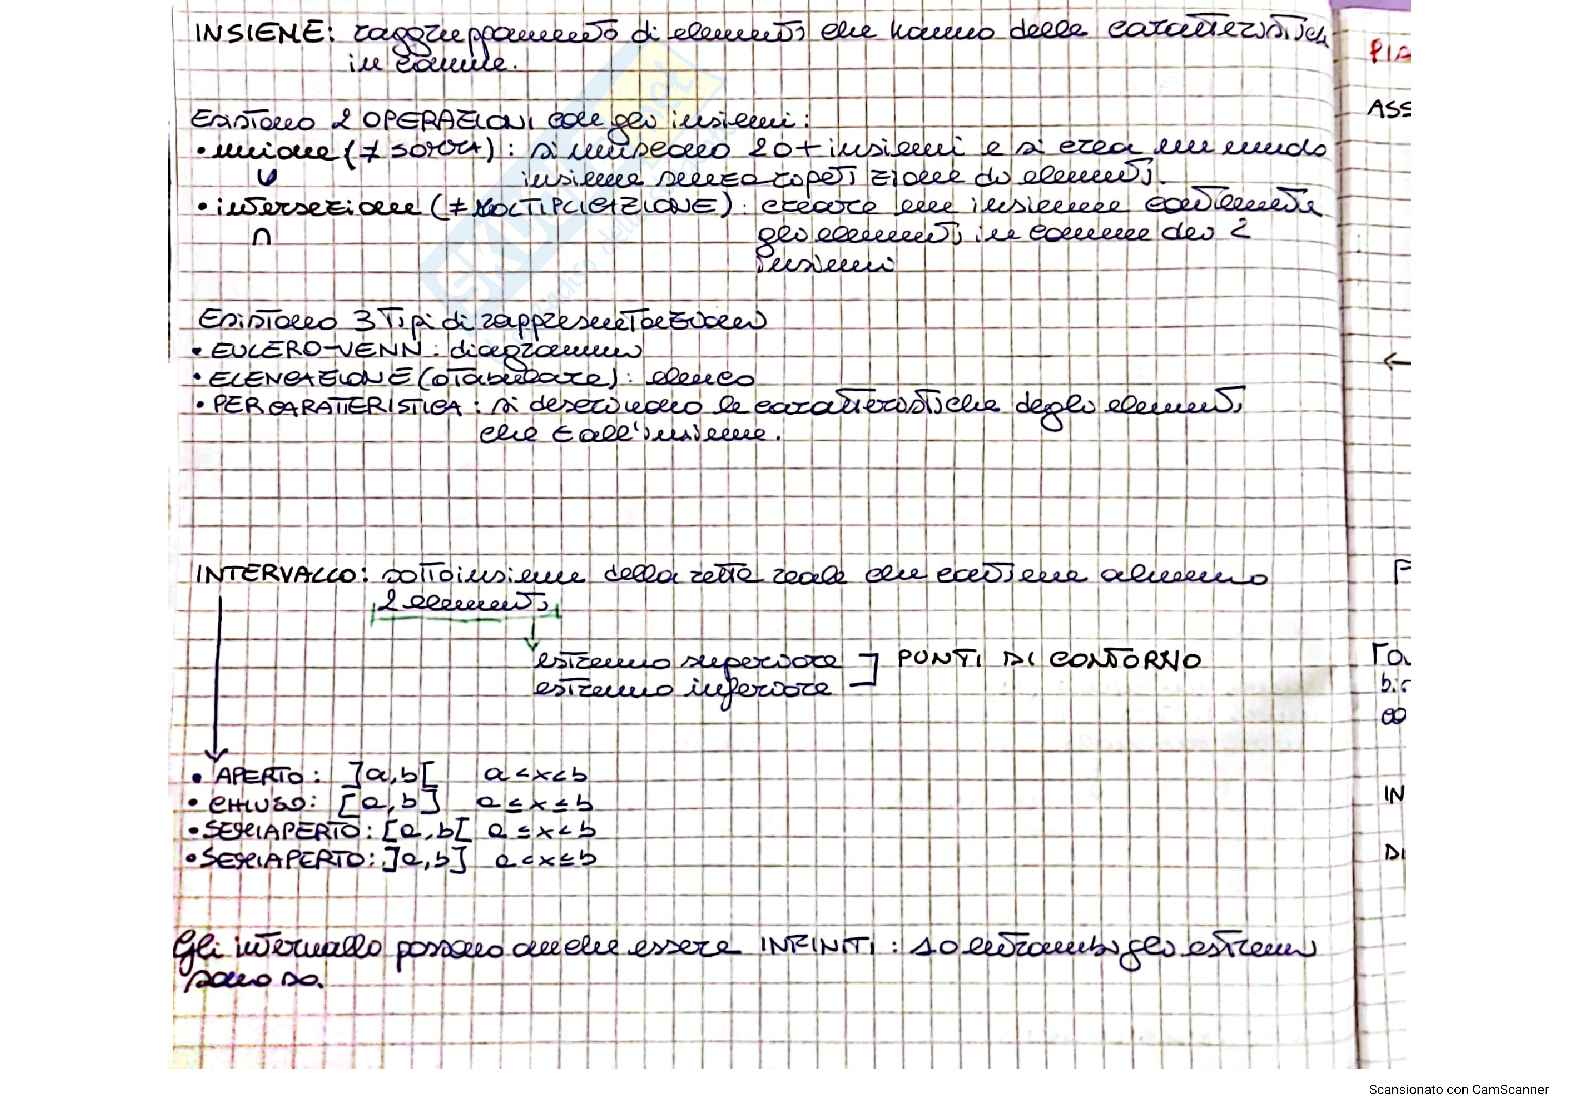 INSIEME: raggruppamento di elementi che hanno delle caratteristich
in comune.
Esistono 2 OPERAZIONI con gli insiemi:
• unione (≠ SOMMA): si uniscono 2 o + insiemi e si crea un unico
∪ insieme senza ripetizione di elementi.
• intersezione (≠ MOLTIPLICAZIONE): creare un insieme contenente
∩ gli elementi in comune dei 2
insiemi
Esistono 3 tipi di rappresentazioni
• EULERO-VENN: diagramma
• ELENCAZIONE (o tabulare): elenco
• PER CARATTERISTICA: si descrivono le caratteristiche degli elementi
che ∈ all'insieme.
INTERVALLO: sottoinsieme della retta reale che contiene almeno
2 elementi
estremo superiore ] PUNTI DI CONTORNO
estremo inferiore
• APERTO: ]a,b[ a<x<b
• CHIUSO: [a,b] a≤x≤b
• SEMIAPERTO: [a,b[ a≤x<b
• SEMIAPERTO: ]a,b] a<x≤b
Gli intervalli possono anche essere INFINITI: 1 o entrambi gli estremi
sono ∞.
PIA
ASS
←
IN
DI
Scansionato con CamScanner